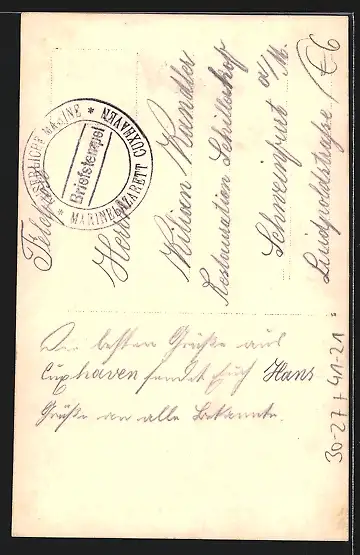 Feldpost
KAISERLICHE MARINE * MARINELAZARETT CUXHAVEN *
Briefstempel
Herrn
Kilian Kandler
Restauration Schillerhof
Schweinfurt a/M.
Luidpoldstraße
Die besten Grüße aus
Cuxhaven sendet Euch Hans
Grüße an alle Bekannte.
30-27 + 41-21